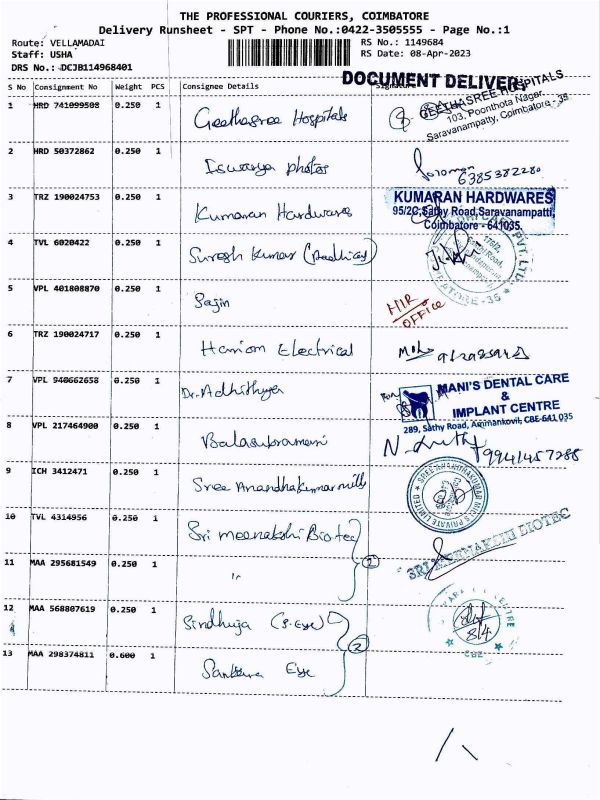 THE PROFESSIONAL COURIERS, COIMBATORE
Delivery Runsheet - SPT - Phone No.:0422-3505555 - Page No.:1
Route: VELLAMADAI
RS No.: 1149684
Staff: USHA
RS Date: 08-Apr-2023
DRS No.: DCJB114968401
DOCUMENT DELIVERY
S No Consignment No Weight PCS Consignee Details Signature
1 HRD 741099508 0.250 1 Geethasree Hospitals
GEETHASREE HOSPITALS
103, Poonthota Nagar,
Saravanampatty, Coimbatore - 35
2 HRD 50372862 0.250 1 Iswarya photos
6385382280
3 TRZ 190024753 0.250 1 Kumaran Hardwares
KUMARAN HARDWARES
95/2C, Sathy Road, Saravanampatti,
Coimbatore - 641035.
4 TVL 6020422 0.250 1 Suresh Kumar
5 VPL 401808870 0.250 1 Sajin
HIR
OFFICE
6 TRZ 190024717 0.250 1 Hariom Electrical
7 VPL 940662658 0.250 1 Dr. Adhithya
MANI'S DENTAL CARE
&
IMPLANT CENTRE
289, Sathy Road, Ammankovil, CBE-641 035
8 VPL 217464900 0.250 1 Balasubramani
9941457288
9 ICH 3412471 0.250 1 Sree Anandhakumar mills
10 TVL 4314956 0.250 1 Sri meenakshi Biotec
SRI MEENAKSHI BIOTEC
11 MAA 295681549 0.250 1 "
2
12 MAA 568807619 0.250 1 Sindhuja (S. Eye)
8/4
2
13 MAA 298374811 0.600 1 Sankara Eye